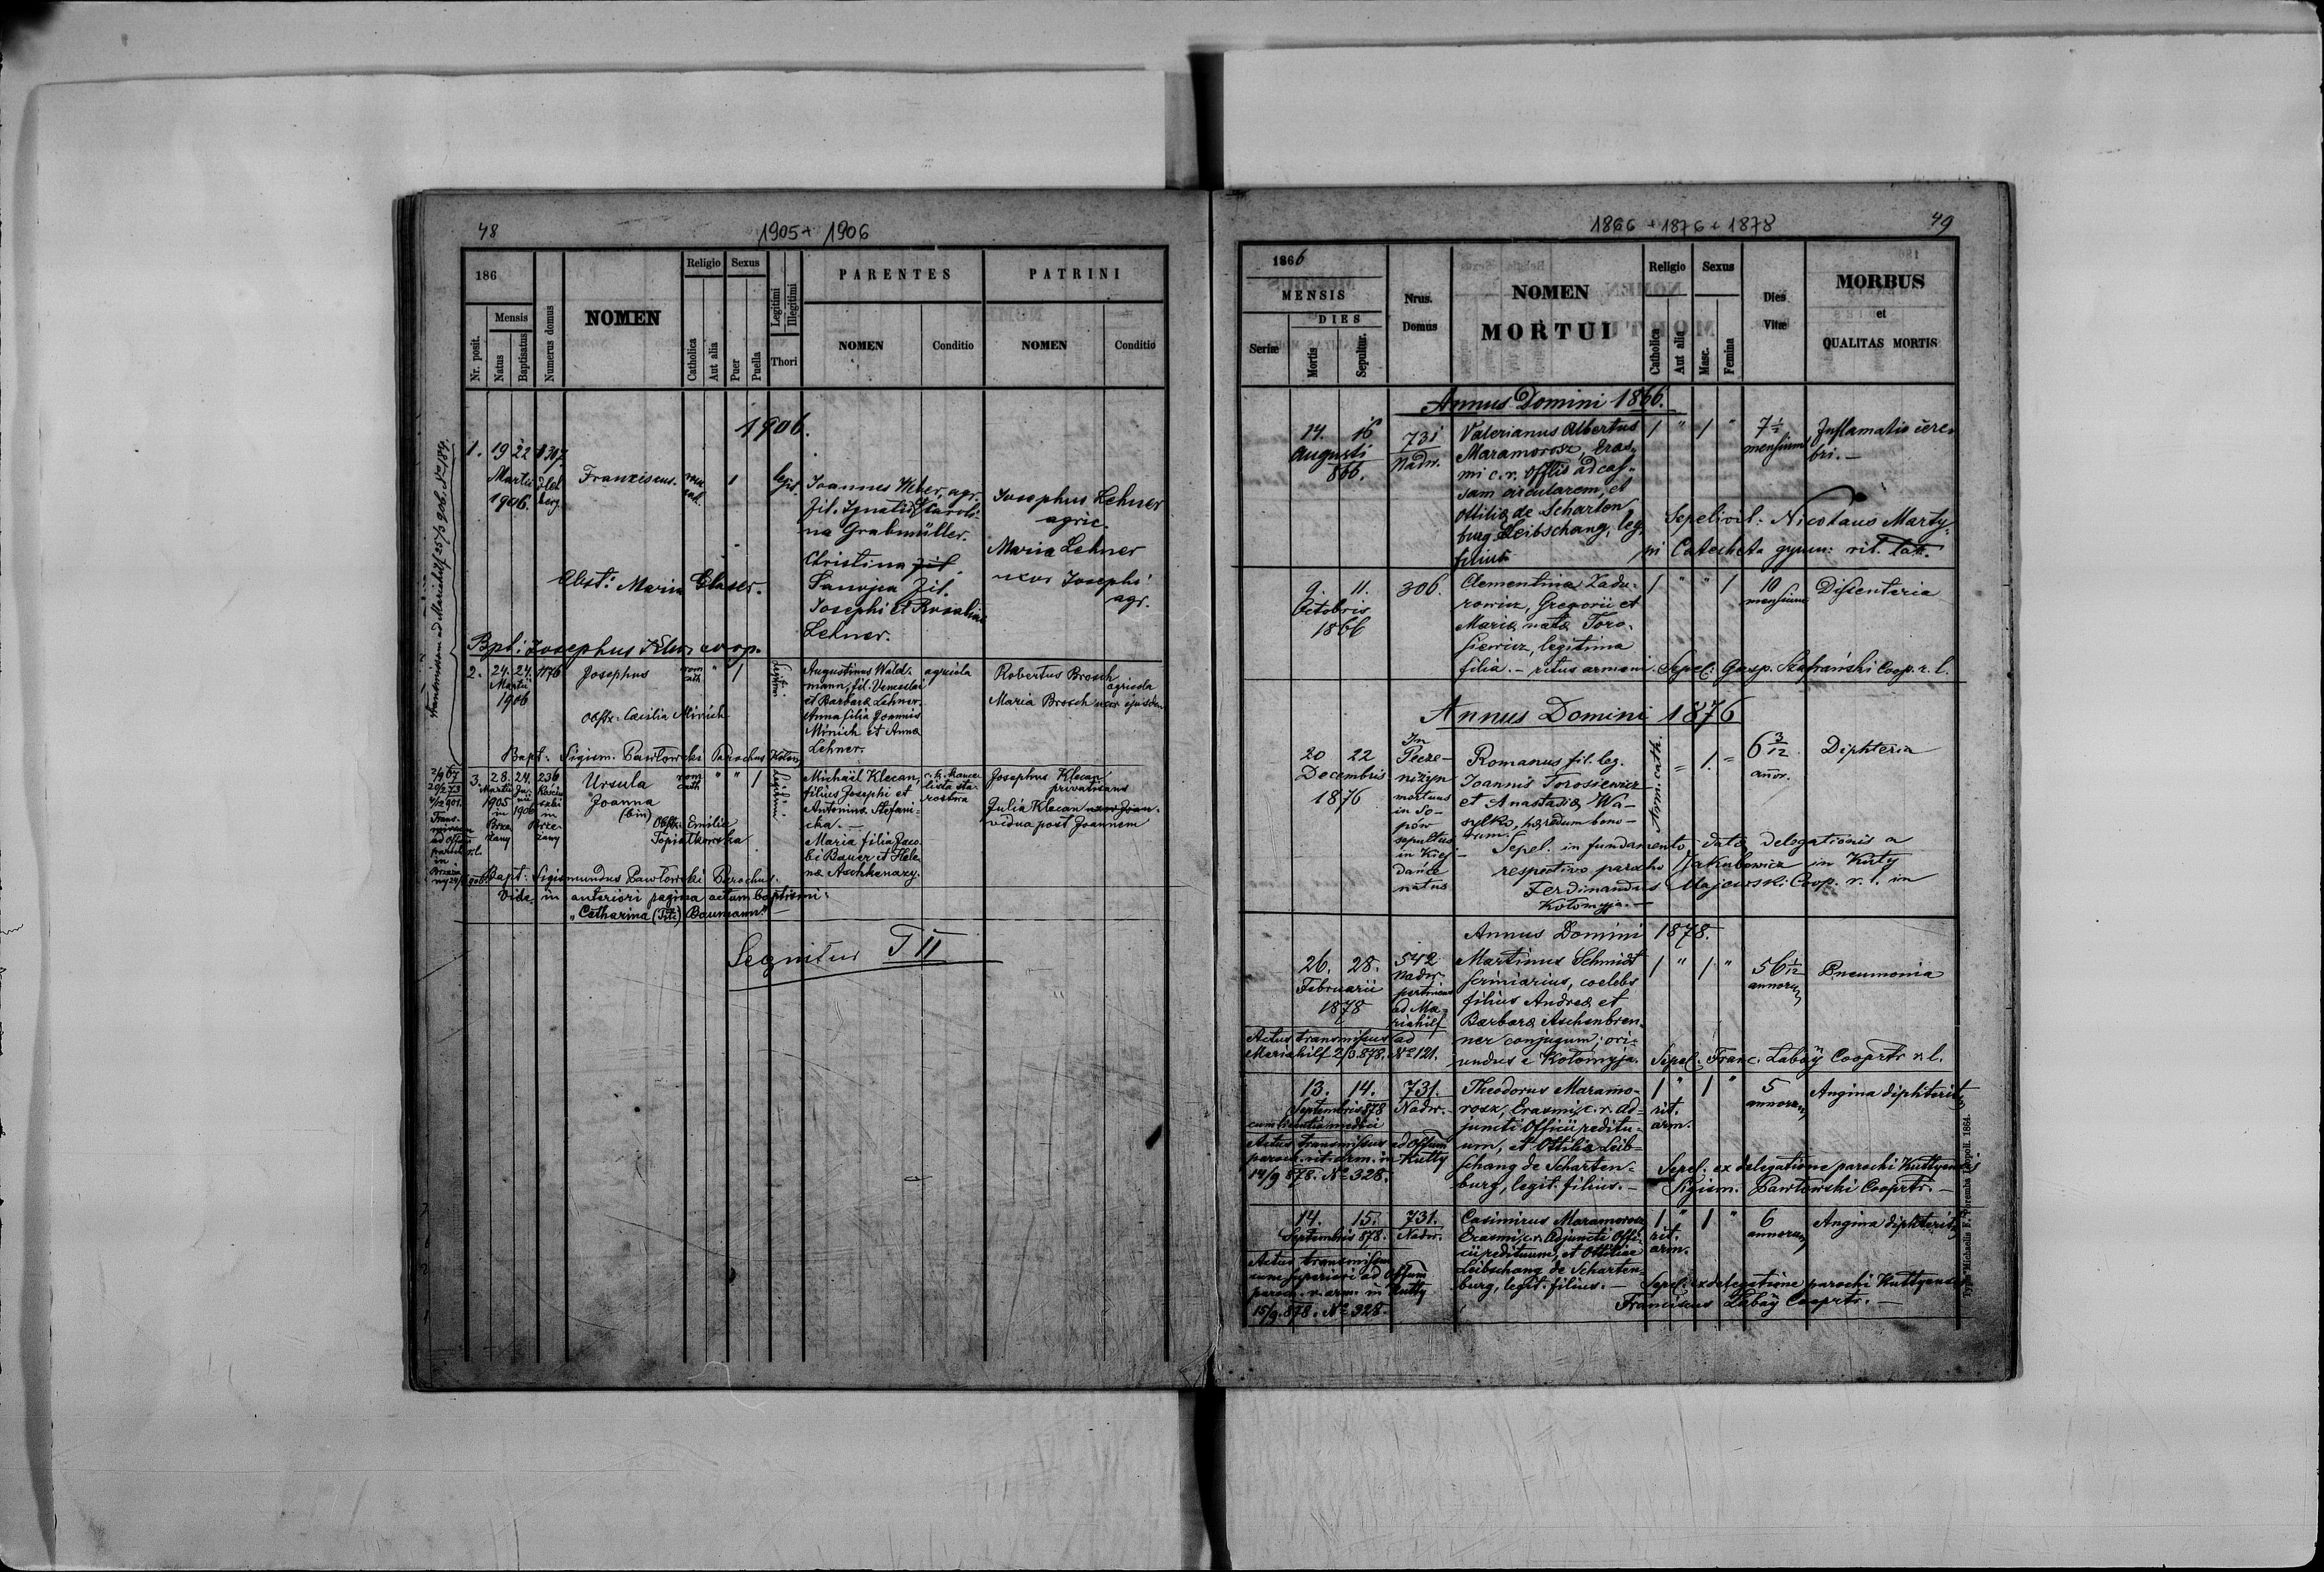 48
1905 + 1906
186
Nr. posit.
Mensis
Natus
Baptisatus
Numerus domus
NOMEN
Religio
Catholica
Aut alia
Sexus
Puer
Puella
Legitimi
Illegitimi
Thori
PARENTES
NOMEN
Conditio
PATRINI
NOMEN
Conditio
1906.
1. 19 22 1307
Martii
1906.
Franciscus.
1
legit.
Joannes Weber, agr.
fil. Ignatii et Caroli-
na Grabmüller.
Christina fil.
Sanojca fil.
Josephi et Rosalia
Lehner.
Josephus Lehner
agric.
Maria Lehner
uxor Josephi
agr.
Obst: Maria Glaser.
Bpt: Josephus coop.
2. 24. 24. 1176
Martii
1906
Josephus
rom
cath
"
1
Legitimi
Augustinus Wald-
mann, fil. Venceslai
et Barbara Lehner.
Anna filia Joannis
Minich et Anna
Lehner.
agricola
Robertus Brosch
agricola
Maria Brosch uxor ejusdem
Obstx: Cæcilia Minich
Bapt: Sigism. Pawłowski Parochus
3. 28. 24. 236
Martii Junii
1905 1906
in
Brze-
żany
Kościu-
szki
in
Brze-
żany
Ursula
Joanna
(bin)
rom
cath
"
"
1
Legitimi
Michaël Klecan,
filius Josephi et
Antonina Stefani-
cka. —
Maria filia Jaco-
bi Bauer et Hele-
na Aschkenazy.
c. k. kance-
lista sta-
rostwa
Josephus Klecan
privatisans
Julia Klecan uxor Joan.
vidua post Joannem
Obstx: Emilia
Topiatkowska
Bapt: Sigismundus Pawłowski Parochus.
Vide in anteriori pagina actum baptismi:
"Catharina (Titi) Baumann" —
Sequitur T II
1866 + 1876 + 1878
49
1866
MENSIS
DIES
Seriæ
Mortis
Sepultur.
Nrus.
Domus
NOMEN
MORTUI
Religio
Catholica
Aut alia
Sexus
Masc.
Femina
Dies
Vitæ
MORBUS
et
QUALITAS MORTIS
Annus Domini 1866.
14. 16
Augusti
866.
731
Nadw.
Valerianus Albertus
Maramorosz, Eras-
mi c. r. Offlis ad cas-
sam circularem, et
Ottiliæ de Scharten
burg Leibschang, leg.
filius
1 " 1 "
7½
mensium
Inflamatio cere-
bri. —
Sepelivit: Nicolaus Marty-
ni Catecheta gymn: rit. lat.
9. 11.
Octobris
1866
306.
Clementina Zadu-
rowicz, Gregorii et
Maria nata Toro-
siewicz, legitima
filia. — ritus armeni.
1 " " 1
10
mensium
Dissenteria
Sepel: Gasp. Szafrański Coop. r. l.
Annus Domini 1876
20 22
Decembris
1876
In
Pecze-
niżyn
mortuus
in So-
pów
sepultus
in Kiej-
dańce
natus
Romanus fil. leg.
Joannis Torosiewicz
et Anastasiæ Wa-
sylko, hæredum bono-
rum.
Arm. cath.
" 1. "
6 3/12
anor.
Diphteria
Sepel. in fundamento dato delegationis a
respectivo parocho Jakubowicz in Kuty
Ferdinandus Majewski Coop. r. l. in
Kołomyja. —
Annus Domini 1878.
26. 28.
Februarii
1878
542
Nadw.
pertinens
ad Ma-
riahilf
Martinus Schmidt
scriniarius, coelebs
filius Andreæ et
Barbaræ Aschenbren-
ner conjugum; ori-
undus e Kołomyja.
1 " 1 "
56 1/12
annorum
Pneumonia
Actus transmissus ad
Mariahilf 2/3.878. No 121.
Sepel. Franc. Łaboÿ Cooprtr r. l.
13. 14.
Septembris 878
cum licentia medici
731.
Nadw.
Theodorus Maramo-
rosz, Erasmi c. r. ad-
juncti Officii reditu-
um, et Ottiliæ Leib-
schang de Scharten-
burg, legit. filius. —
1 " 1 "
rit.
arm.
5
annorum
Angina diphterit.
Actus transmissus ad Offium
paroch. rit. arm. in Kutty
14/9 878. No 328.
Sepel: ex delegatione parochi Kuttyensis
Sigism. Pawłowski Cooprtr. —
14. 15.
Septembris 878.
731.
Nadw.
Casimirus Maramorosz
Erasmi c. r. Adjuncti Offi-
cii redituum, et Ottiliae
Leibschang de Scharten-
burg, legit. filius. —
1 " 1 "
rit.
arm.
6
annorum
Angina diphterit.
Actus transmissus
cum superiori ad Offium
paroch. r. arm. in Kutty
15/9. 878. No 328
Sepel: ex delegatione parochi Kuttyensis
Franciscus Łaboÿ Cooprtr. —
Typ. Michaelis F. Poremba Leopoli. 1864.